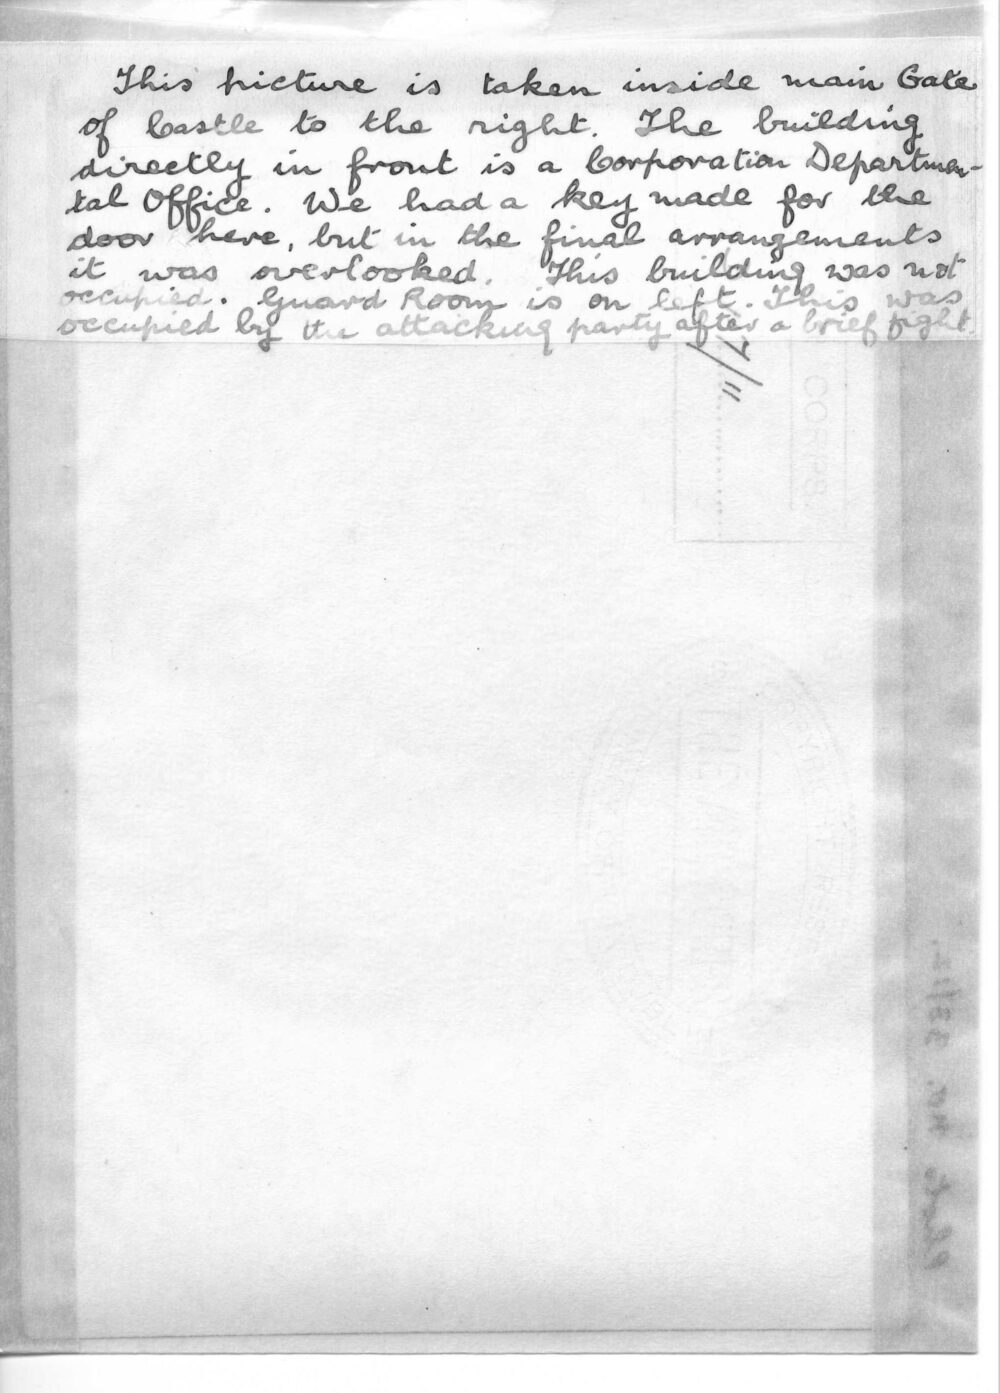 This picture is taken inside main Gate
of Castle to the right. The building
directly in front is a Corporation Departmen-
tal Office. We had a key made for the
door here, but in the final arrangements
it was overlooked. This building was not
occupied. Guard Room is on left. This was
occupied by the attacking party after a brief fight.
7/11
CORPS
Phot No. 38/12.